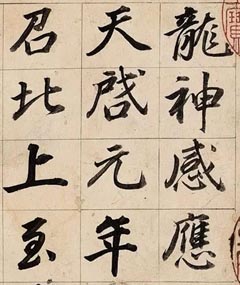 龍神感應
天啓元年
召北上至